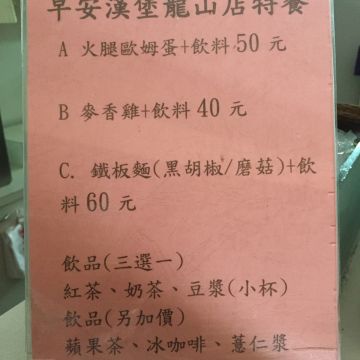 早安漢堡龍山店特餐
A 火腿歐姆蛋+飲料 50 元
B 麥香雞+飲料 40 元
C. 鐵板麵(黑胡椒/磨菇)+飲
料 60 元
飲品(三選一)
紅茶、奶茶、豆漿(小杯)
飲品(另加價)
蘋果茶、冰咖啡、薏仁漿